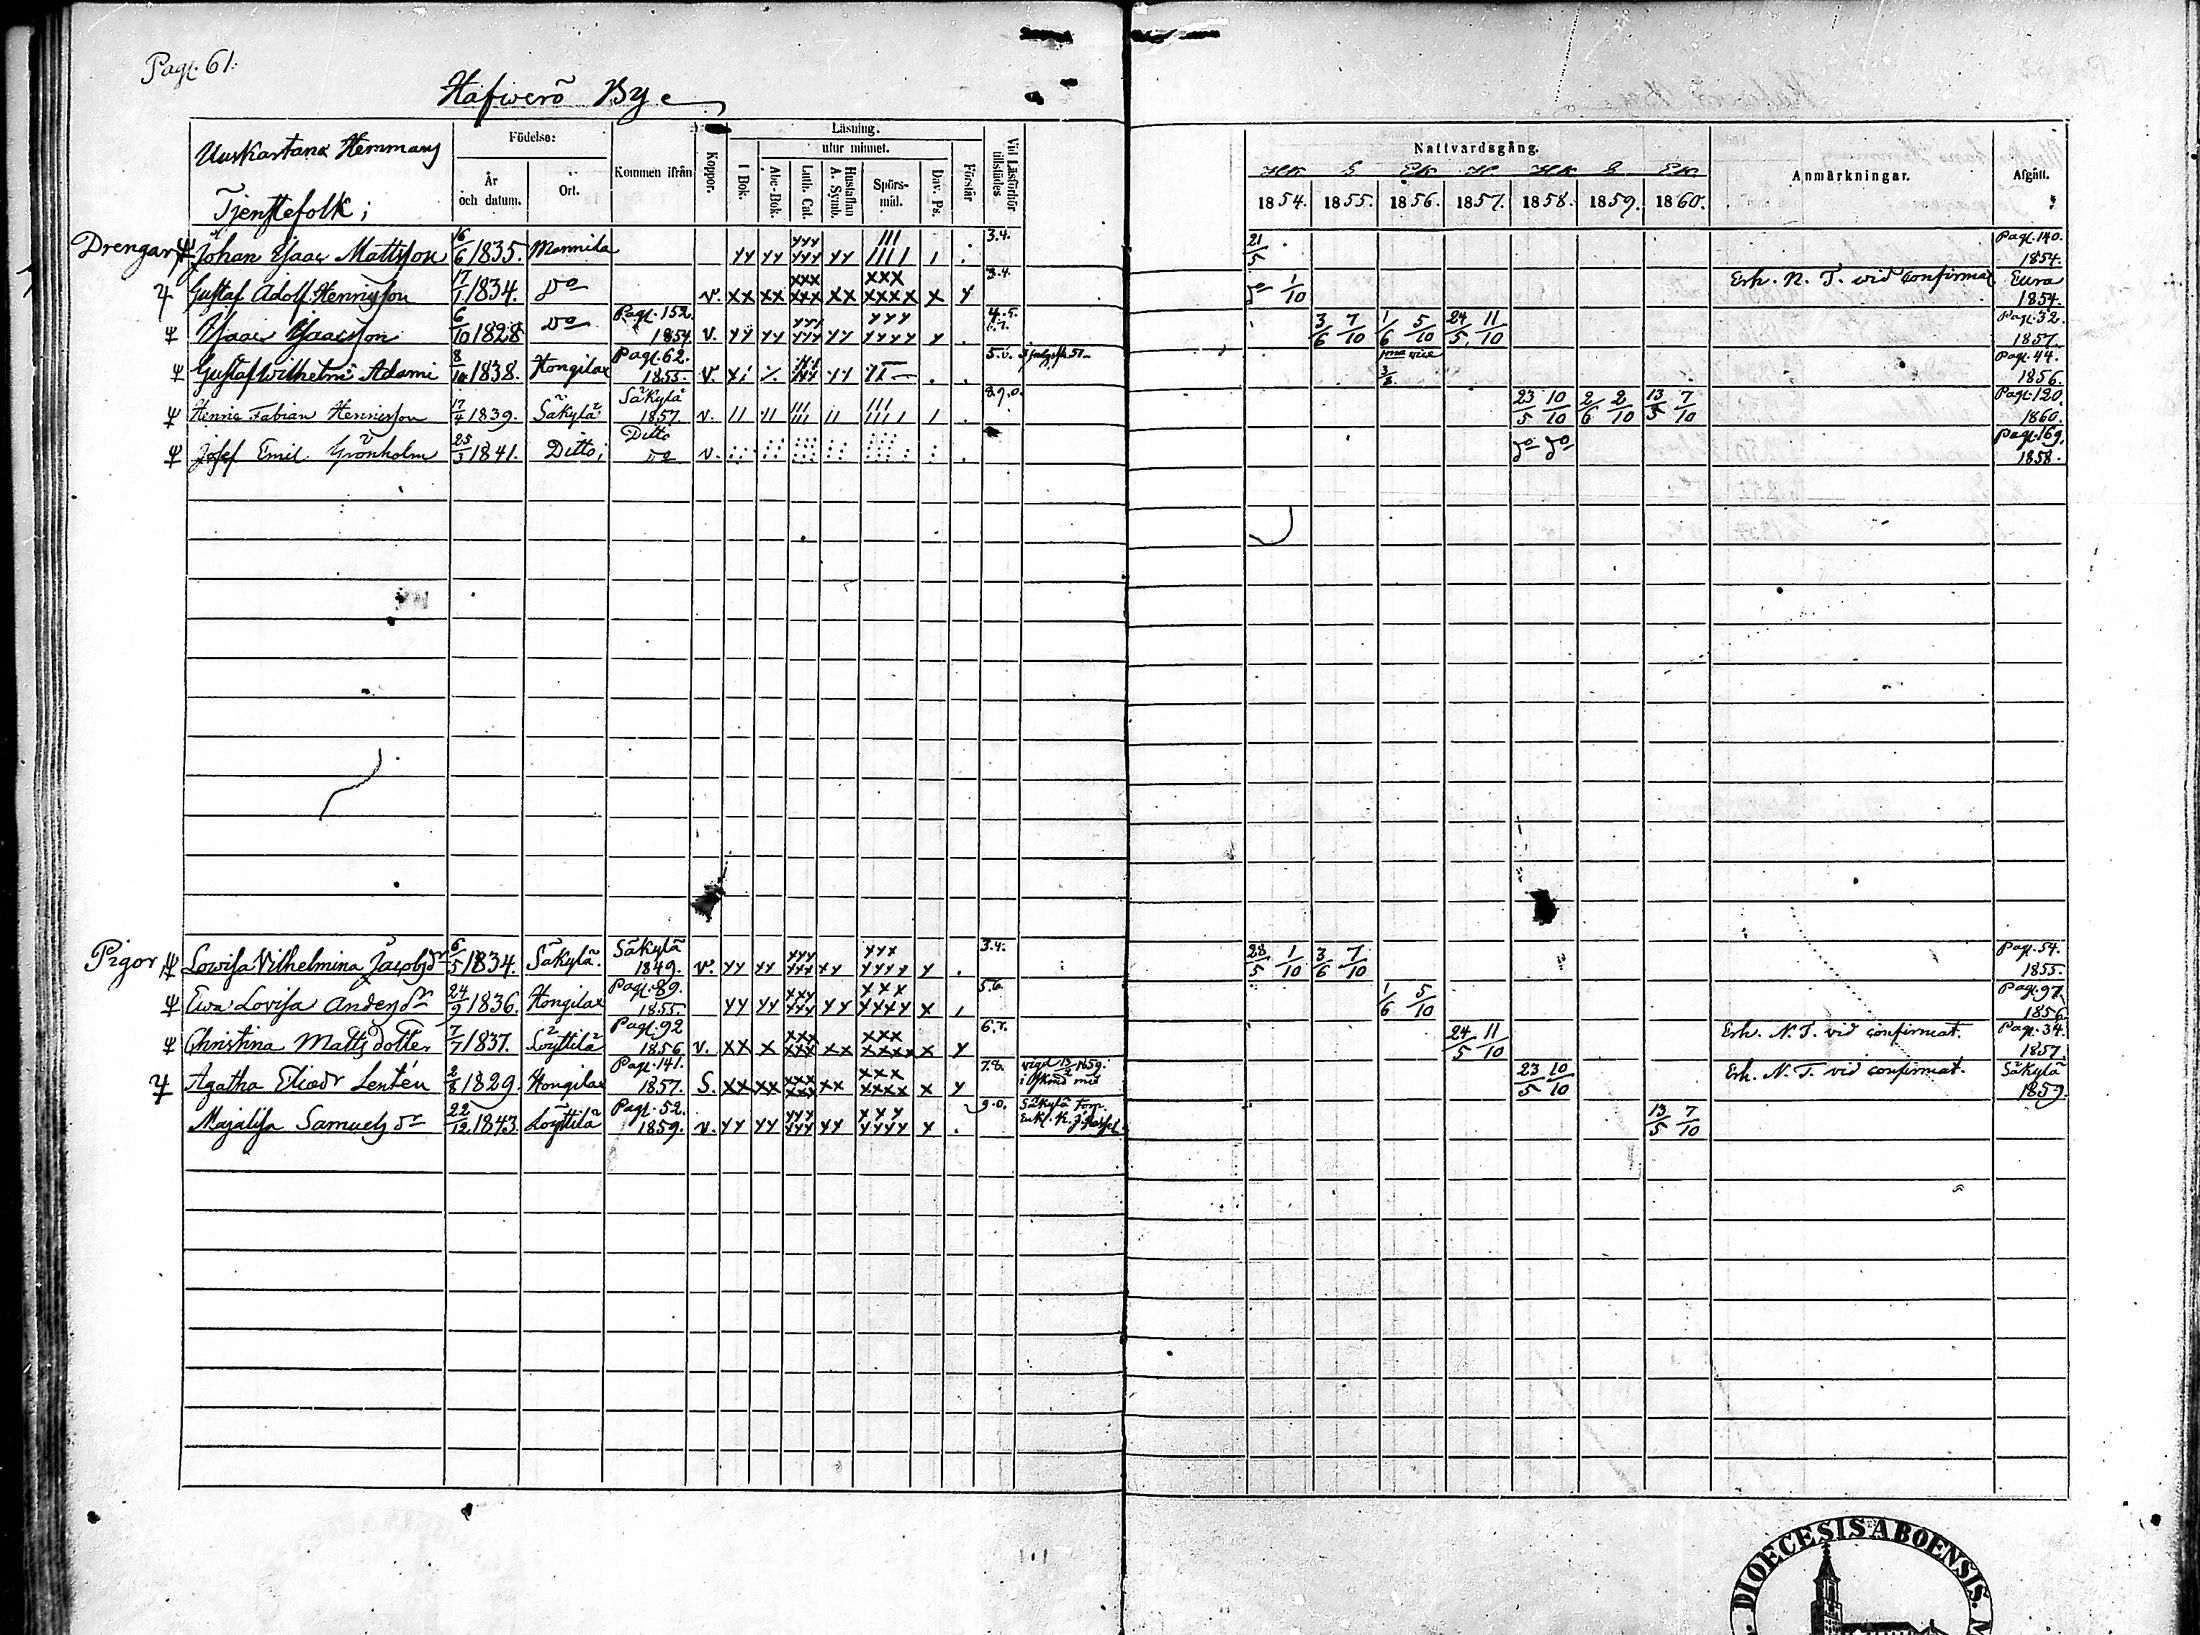 Pag. 61.
Hafwerö By
Uuskartano Hemmans
Tjenstefolk;
Födelse:
År och datum.
Ort.
Kommen ifrån
Koppor.
Läsning.
utur minnet.
I Bok.
Abc-Bok.
Luth. Cat.
Hustaflan A. Symb.
Spörs-mål.
Dav. Ps.
Förstår
Vid Läsförhör tillstädes
Nattvardsgång.
1854. 1855. 1856. 1857. 1858. 1859. 1860.
Anmärkningar.
Afgått.
Drengar, Johan Isaac Mattsson 16/6 1835. Mannila 3.4. 21/5 Pag. 140. 1854.
Gustaf Adolf Henricsson 17/1 1834. Do v. xx xx xxx xxx xx xxx xxxx x y 3.4. Do 1/10 Erh. N. T. vid confirmat Eura 1854.
Isaac Isaacsson 6/10 1828 Do Pag. 152. 1854. v. yy yy yyy yyy yy yyy yyyy y 3/6 7/10 1/6 5/10 24/5 11/10 Pag. 32. 1857.
Gustaf Wilhelm Adami 8/10 1838. Hongilax Pag. 62. 1855. v. Pag. 44. 1856.
Henric Fabian Henricsson 17/4 1839. Säkylä Säkylä 1857. v. 8.9.0. 23/5 10/10 2/6 2/10 13/5 7/10 Pag. 120. 1860.
Josef Emil Grönholm 25/3 1841. Ditto; Ditto Do v. Do Do Pag. 169. 1858.
Pigor, Lovisa Vilhelmina Jacobsdr 6/5 1834. Säkylä. Säkylä 1849. v. yy yy yyy yyy yy yyy yyyy y 3.4. 28/5 1/10 3/6 7/10 Pag. 54. 1855.
Eva Lovisa Andersdr 24/9 1836. Hongilax Pag. 89. 1855. yy yy xxx yyy yy xxx yyyy x 5.6. 1/6 5/10 Pag. 97. 1856
Christina Mattsdotter 7/7 1837. Löyttilä Pag. 92 1856 v. xx x xxx xxx xx xxx xxxx x y 6.7. 24/5 11/10 Erh. N. T. vid confirmat. Pag. 34. 1857.
Agatha Eliædr Lentén 2/8 1829. Hongilax Pag. 141. 1857. S. xx xx xxx xxx xx xxx xxxx x y 7.8. 23/5 10/10 Erh. N. T. vid confirmat. Säkylä 1859.
Majalisa Samuelsdr 22/12 1843. Löyttilä Pag. 52. 1859. v. yy yy yyy yyy yy yyy yyyy y 9.0. Säkylä 13/5 7/10
DIOECESIS ABOENSIS.